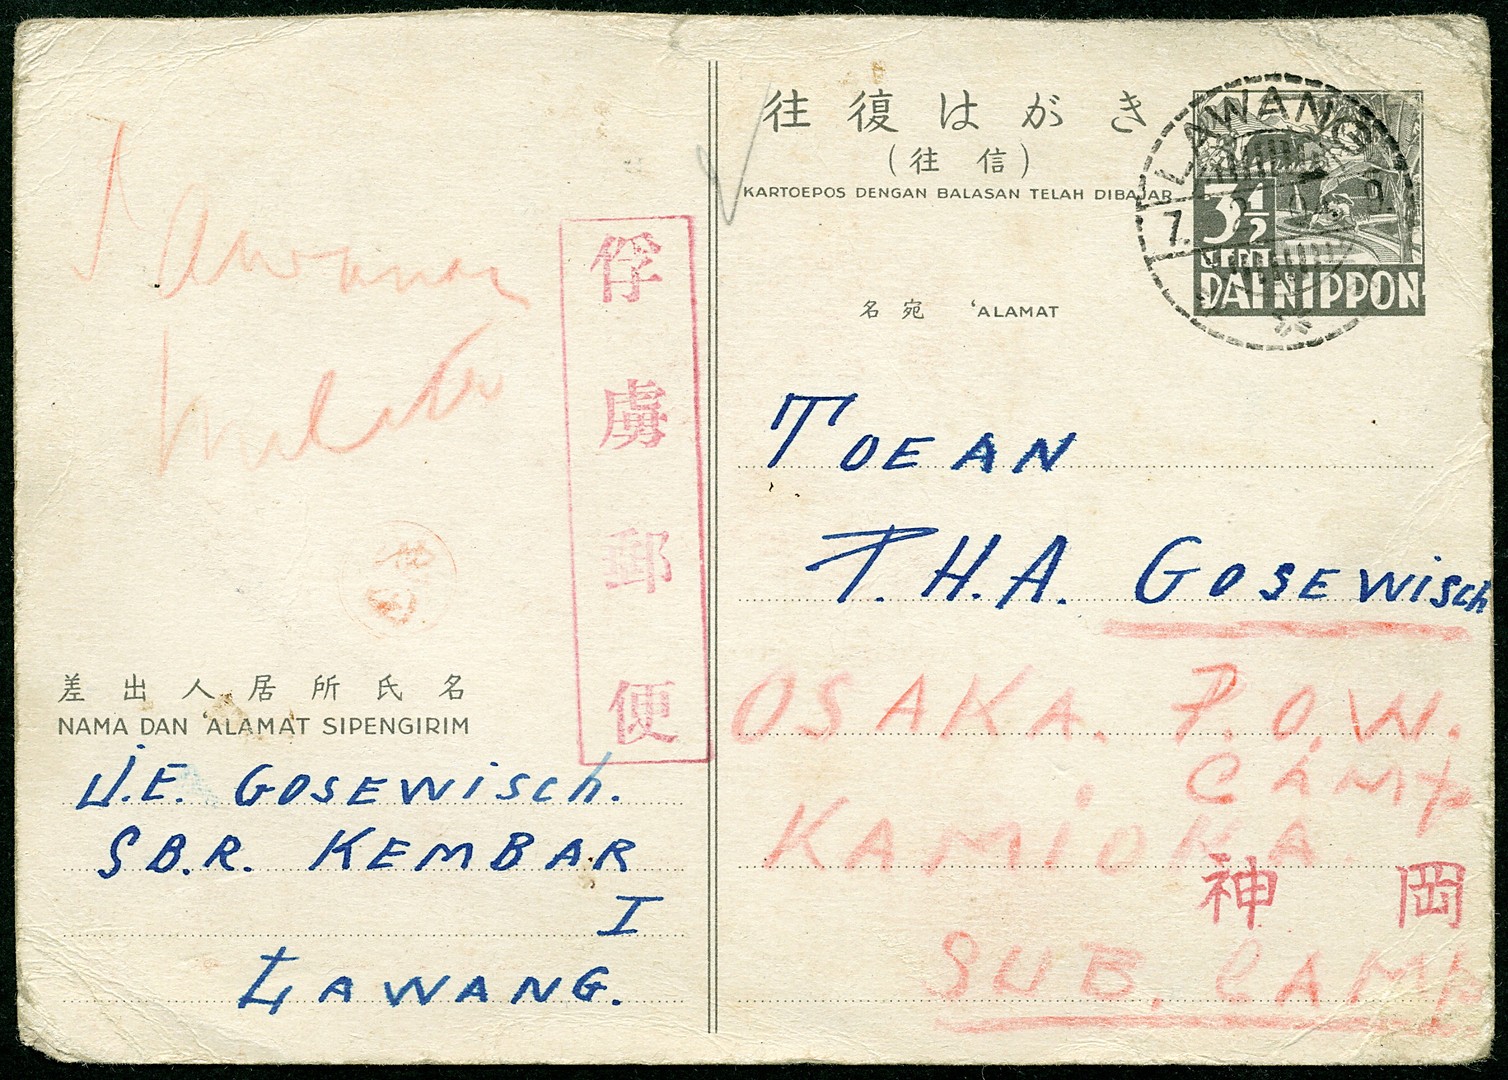 Lawang
俘虜郵便
差出人居所氏名
NAMA DAN 'ALAMAT SIPENGIRIM
J.E. GOSEWisch.
SBR. KEMBAR
I
LAWANG.
往復はがき
(往信)
KARTOEPOS DENGAN BALASAN TELAH DIBAJAR
LAWANG
3½
CENT
DAI NIPPON
名宛 'ALAMAT
TOEAN
P.H.A. GOSEWisch
OSAKA. P.O.W.
CAMP
KAMiOKA.
神岡
SUB. CAMP